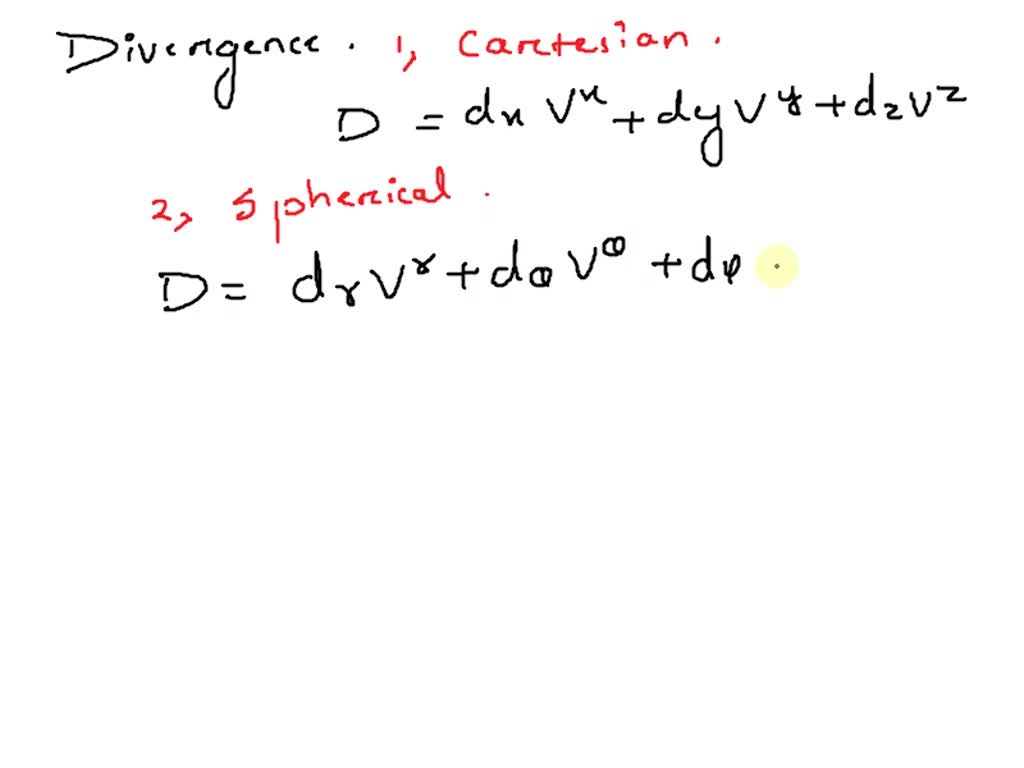 Divergence. 1, Cartesian.
D = dx Vˣ + dy Vʸ + dz Vᶻ
2, Spherical.
D = dr Vʳ + dθ V^θ + dφ